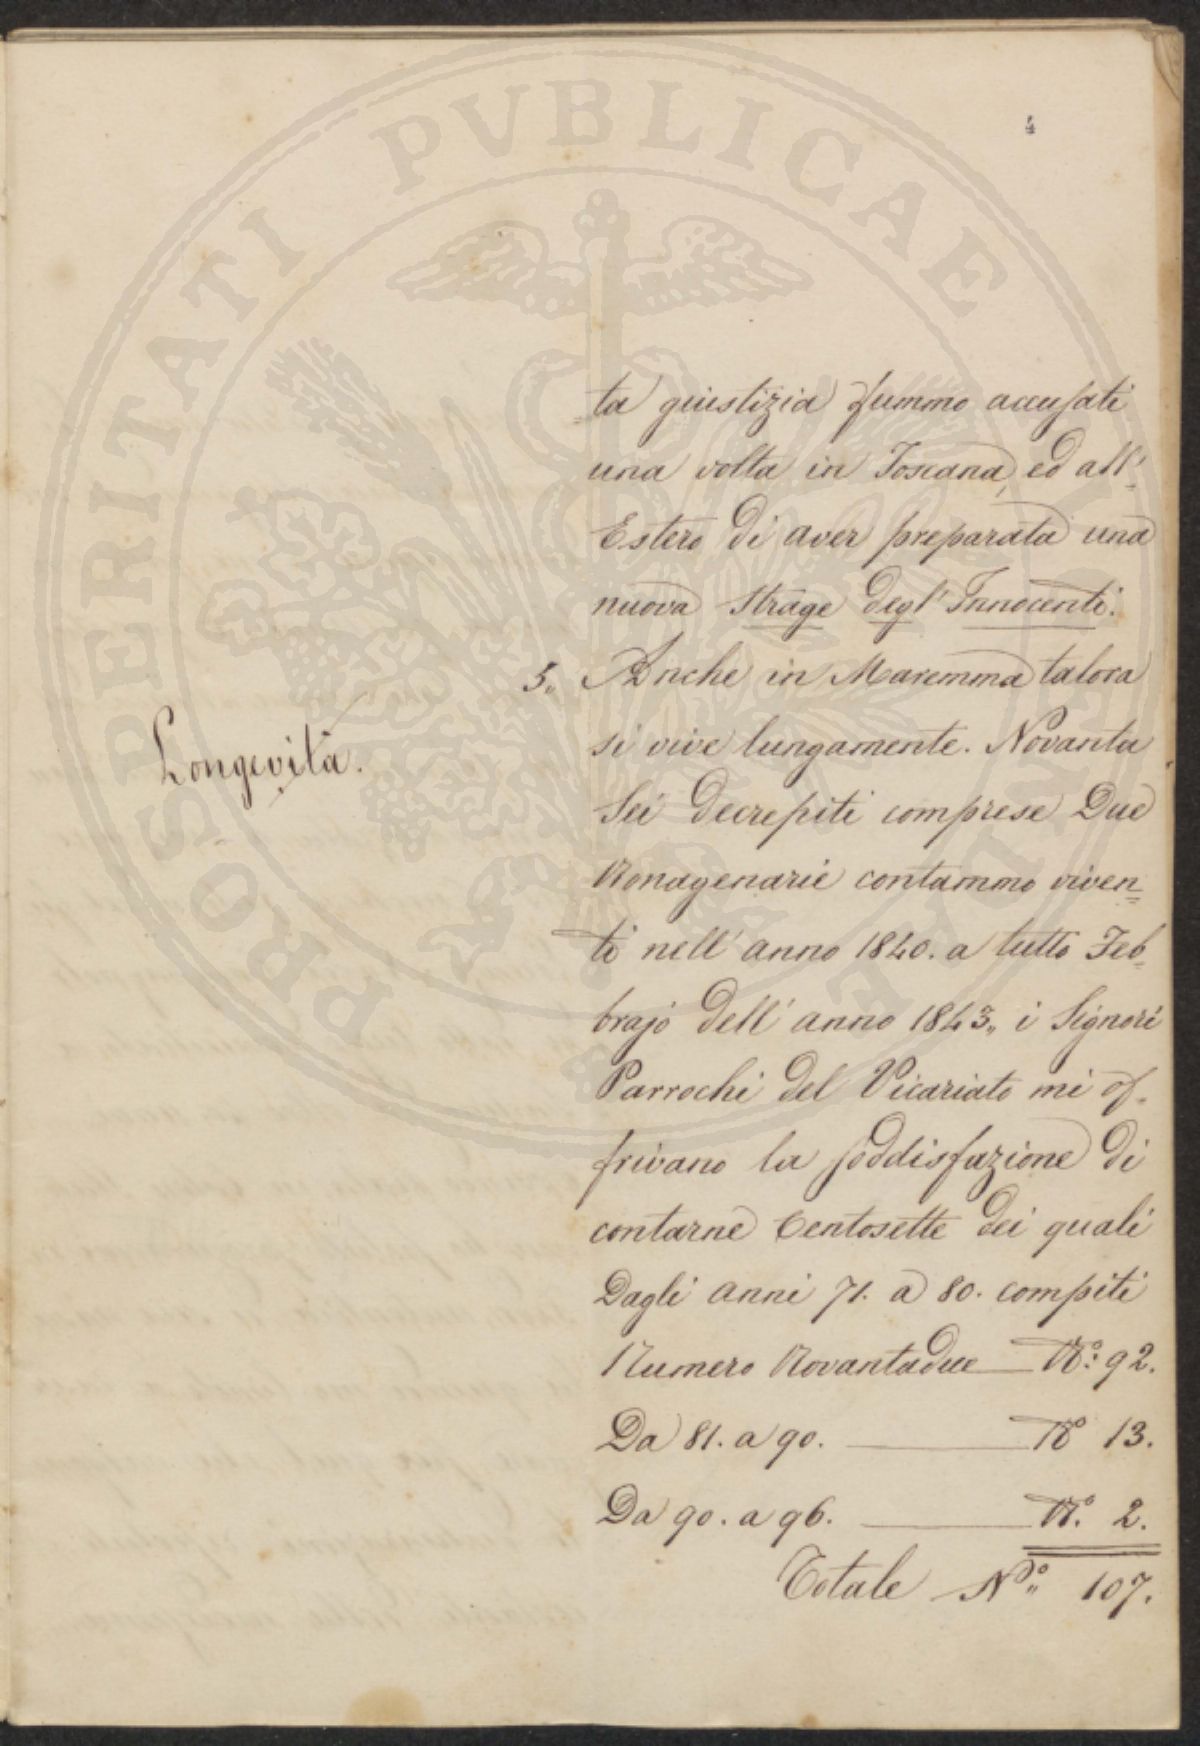 4
ta giustizia fummo accusati
una volta in Toscana, ed all'
Estero di aver preparata una
nuova Strage degl'Innocenti.
5. Anche in Maremma talora
si vive lungamente. Novanta
Longevità.
Sei decrepiti comprese Due
Nonagenarie contammo viven=
ti nell'anno 1840. a tutto Feb=
brajo dell'anno 1843,, i Signori
Parrochi del Vicariato mi of-
frivano la soddisfazione di
contarne Centosette dei quali
Dagli anni 71. a 80. compiti
Numero Novantadue — N.º 92.
Da 81. a 90. — Nº 13.
Da 90. a 96. — N.º 2.
Totale Nº 107.
PROSPERITATI PVBLICAE